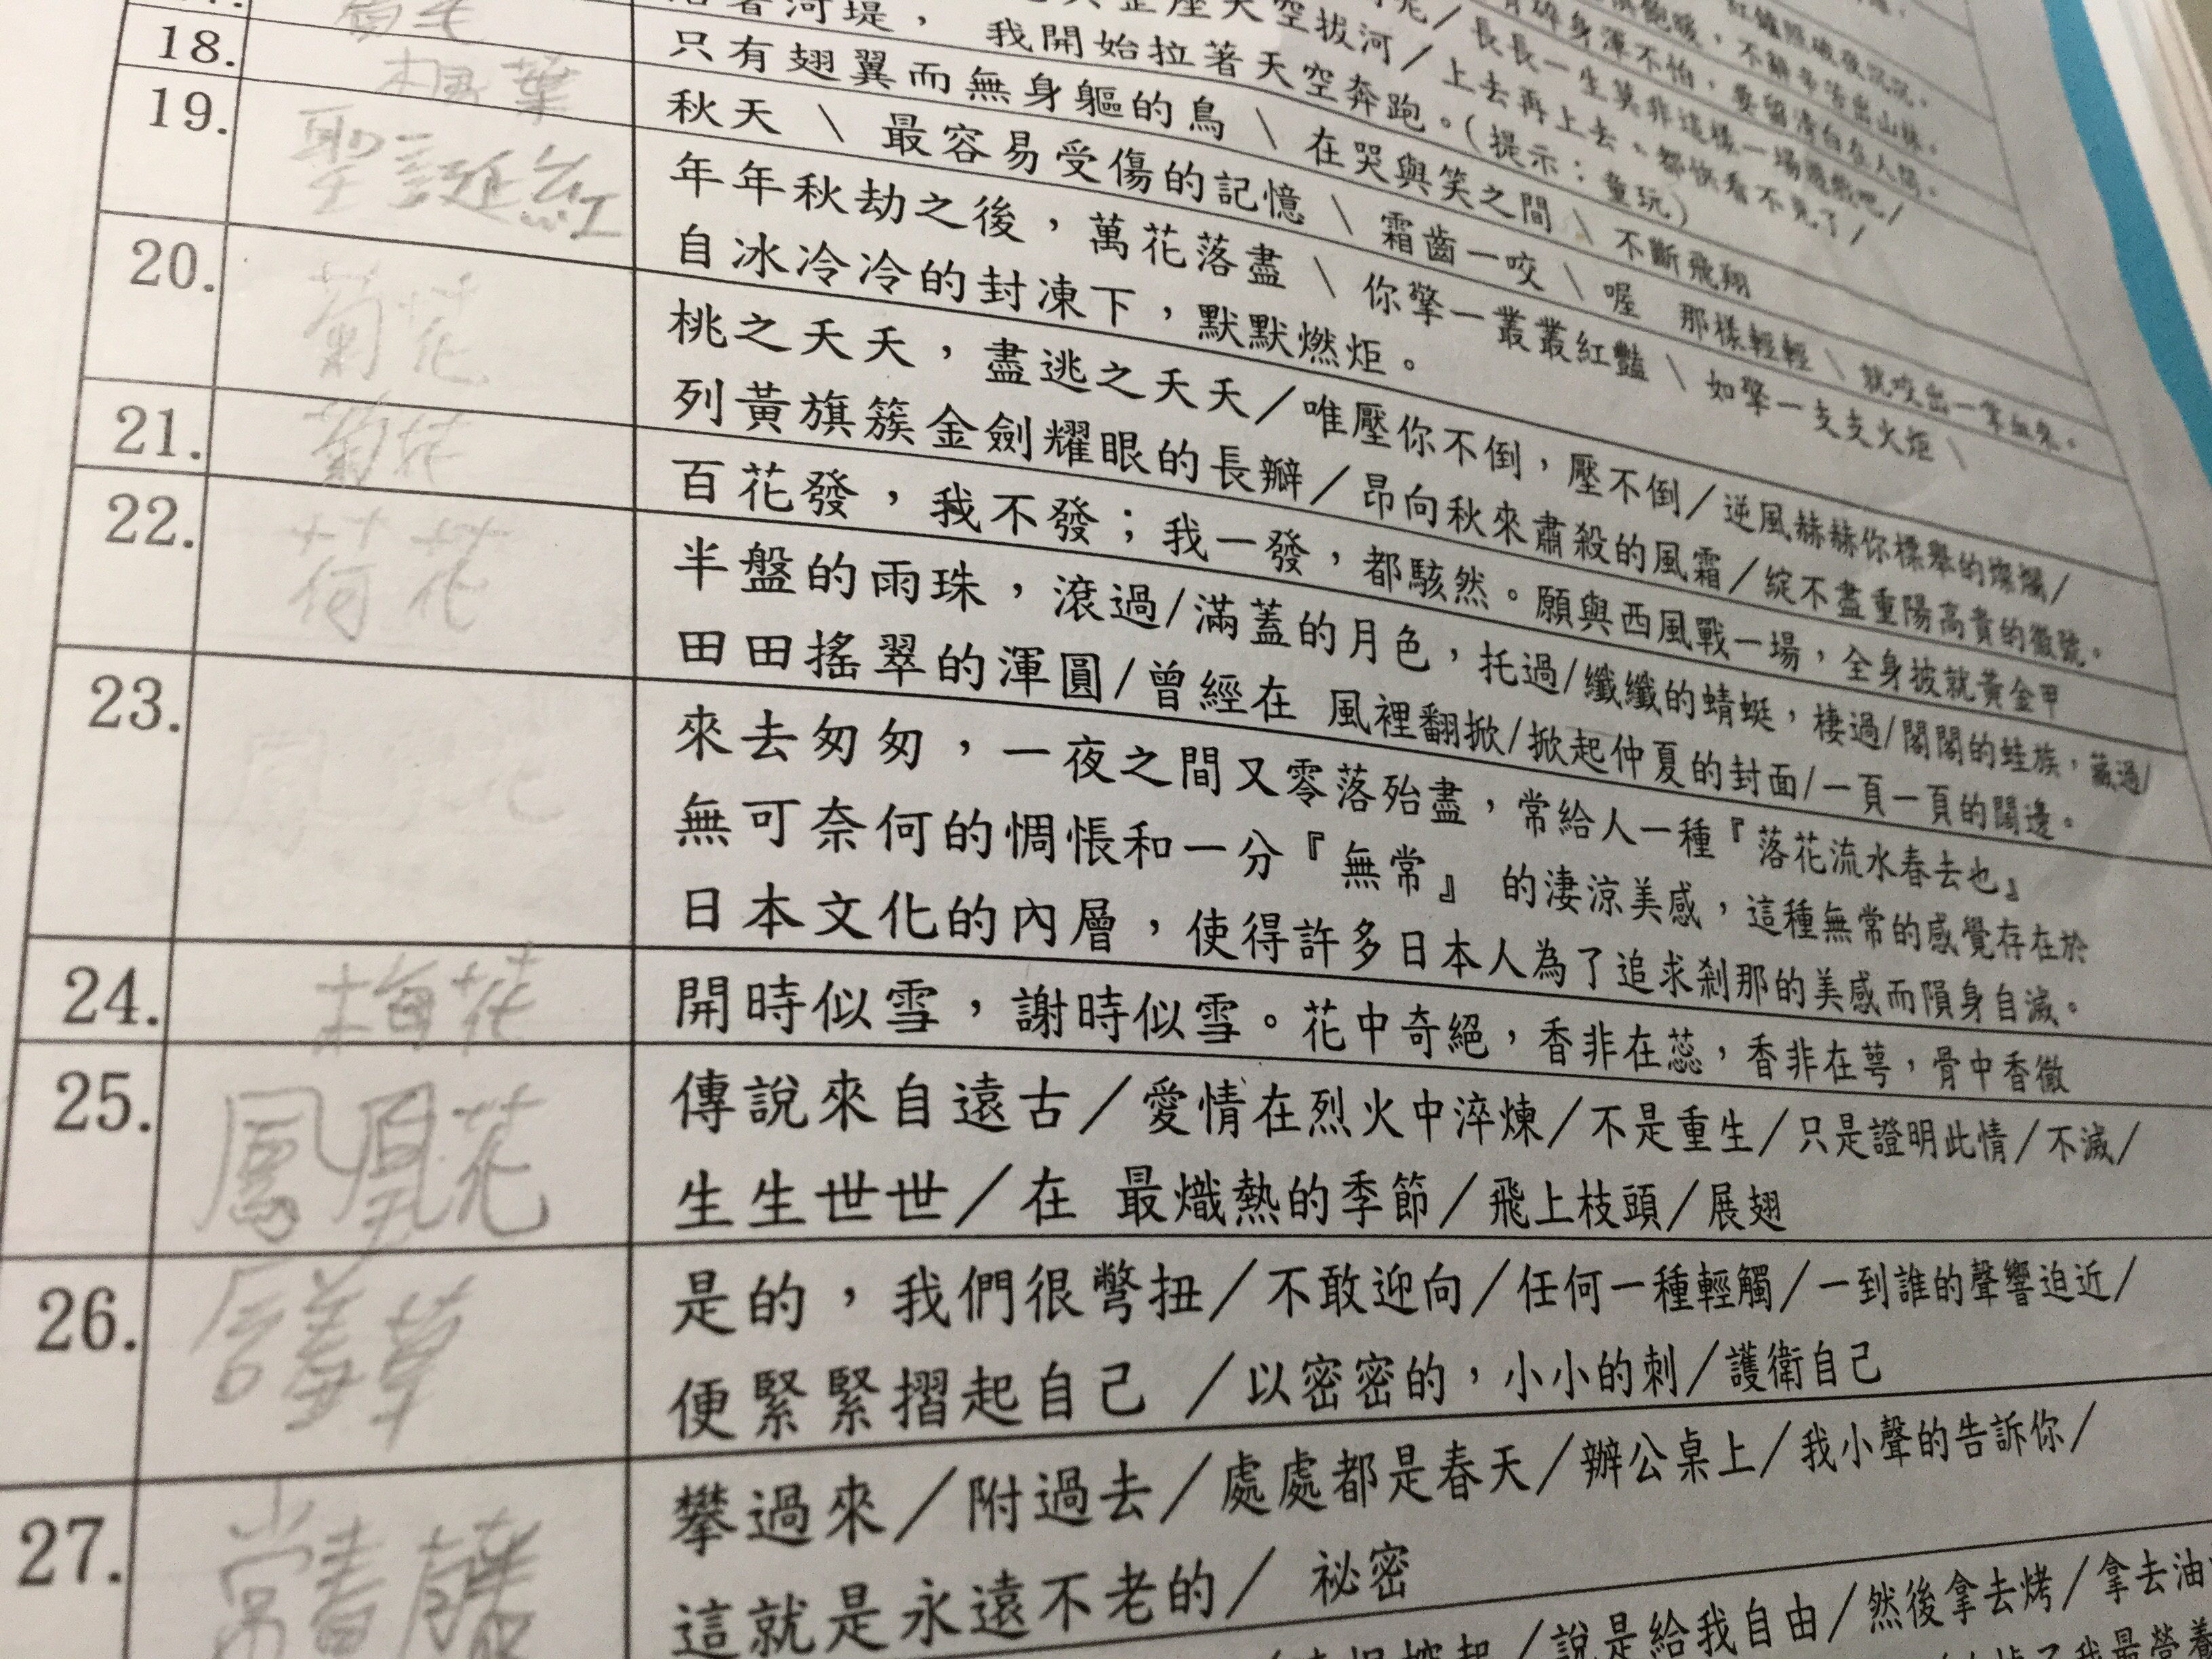 我開始拉著天空奔跑。(提示：童玩)
18.
楓葉
只有翅翼而無身軀的鳥 \ 在哭與笑之間 \ 不斷飛翔
秋天 \ 最容易受傷的記憶 \ 霜齒一咬 \ 喔 那樣輕輕 \ 就咬出一掌血來。
19.
聖誕紅
年年秋劫之後，萬花落盡 \ 你擎一叢叢紅豔 \ 如擎一支支火炬 \
自冰冷冷的封凍下，默默燃炬。
20.
菊花
桃之夭夭，盡逃之夭夭/唯壓你不倒，壓不倒/逆風赫赫你標舉的燦爛/
列黃旗簇金劍耀眼的長瓣/昂向秋來肅殺的風霜/綻不盡重陽高貴的徽號。
21.
菊花
百花發，我不發；我一發，都駭然。願與西風戰一場，全身披就黃金甲
22.
荷花
半盤的雨珠，滾過/滿蓋的月色，托過/纖纖的蜻蜓，棲過/閣閣的蛙族，藏過/
田田搖翠的渾圓/曾經在 風裡翻掀/掀起仲夏的封面/一頁一頁的闊邊。
23.
來去匆匆，一夜之間又零落殆盡，常給人一種『落花流水春去也』
無可奈何的惆悵和一分『無常』 的淒涼美感，這種無常的感覺存在於
日本文化的內層，使得許多日本人為了追求剎那的美感而隕身自滅。
24.
梅花
開時似雪，謝時似雪。花中奇絕，香非在蕊，香非在萼，骨中香徹
25.
鳳凰花
傳說來自遠古/愛情在烈火中淬煉/不是重生/只是證明此情/不滅/
生生世世/在 最熾熱的季節/飛上枝頭/展翅
26.
含羞草
是的，我們很彆扭/不敢迎向/任何一種輕觸/一到誰的聲響迫近/
便緊緊摺起自己 /以密密的，小小的刺/護衛自己
27.
常春藤
攀過來/附過去/處處都是春天/辦公桌上/我小聲的告訴你/
這就是永遠不老的/ 祕密
/說是給我自由/然後拿去烤/拿去油